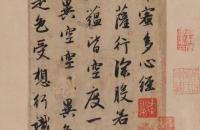 蜜多心經
薩行深般若
蘊皆空度一
異空空異色
是色受想行識